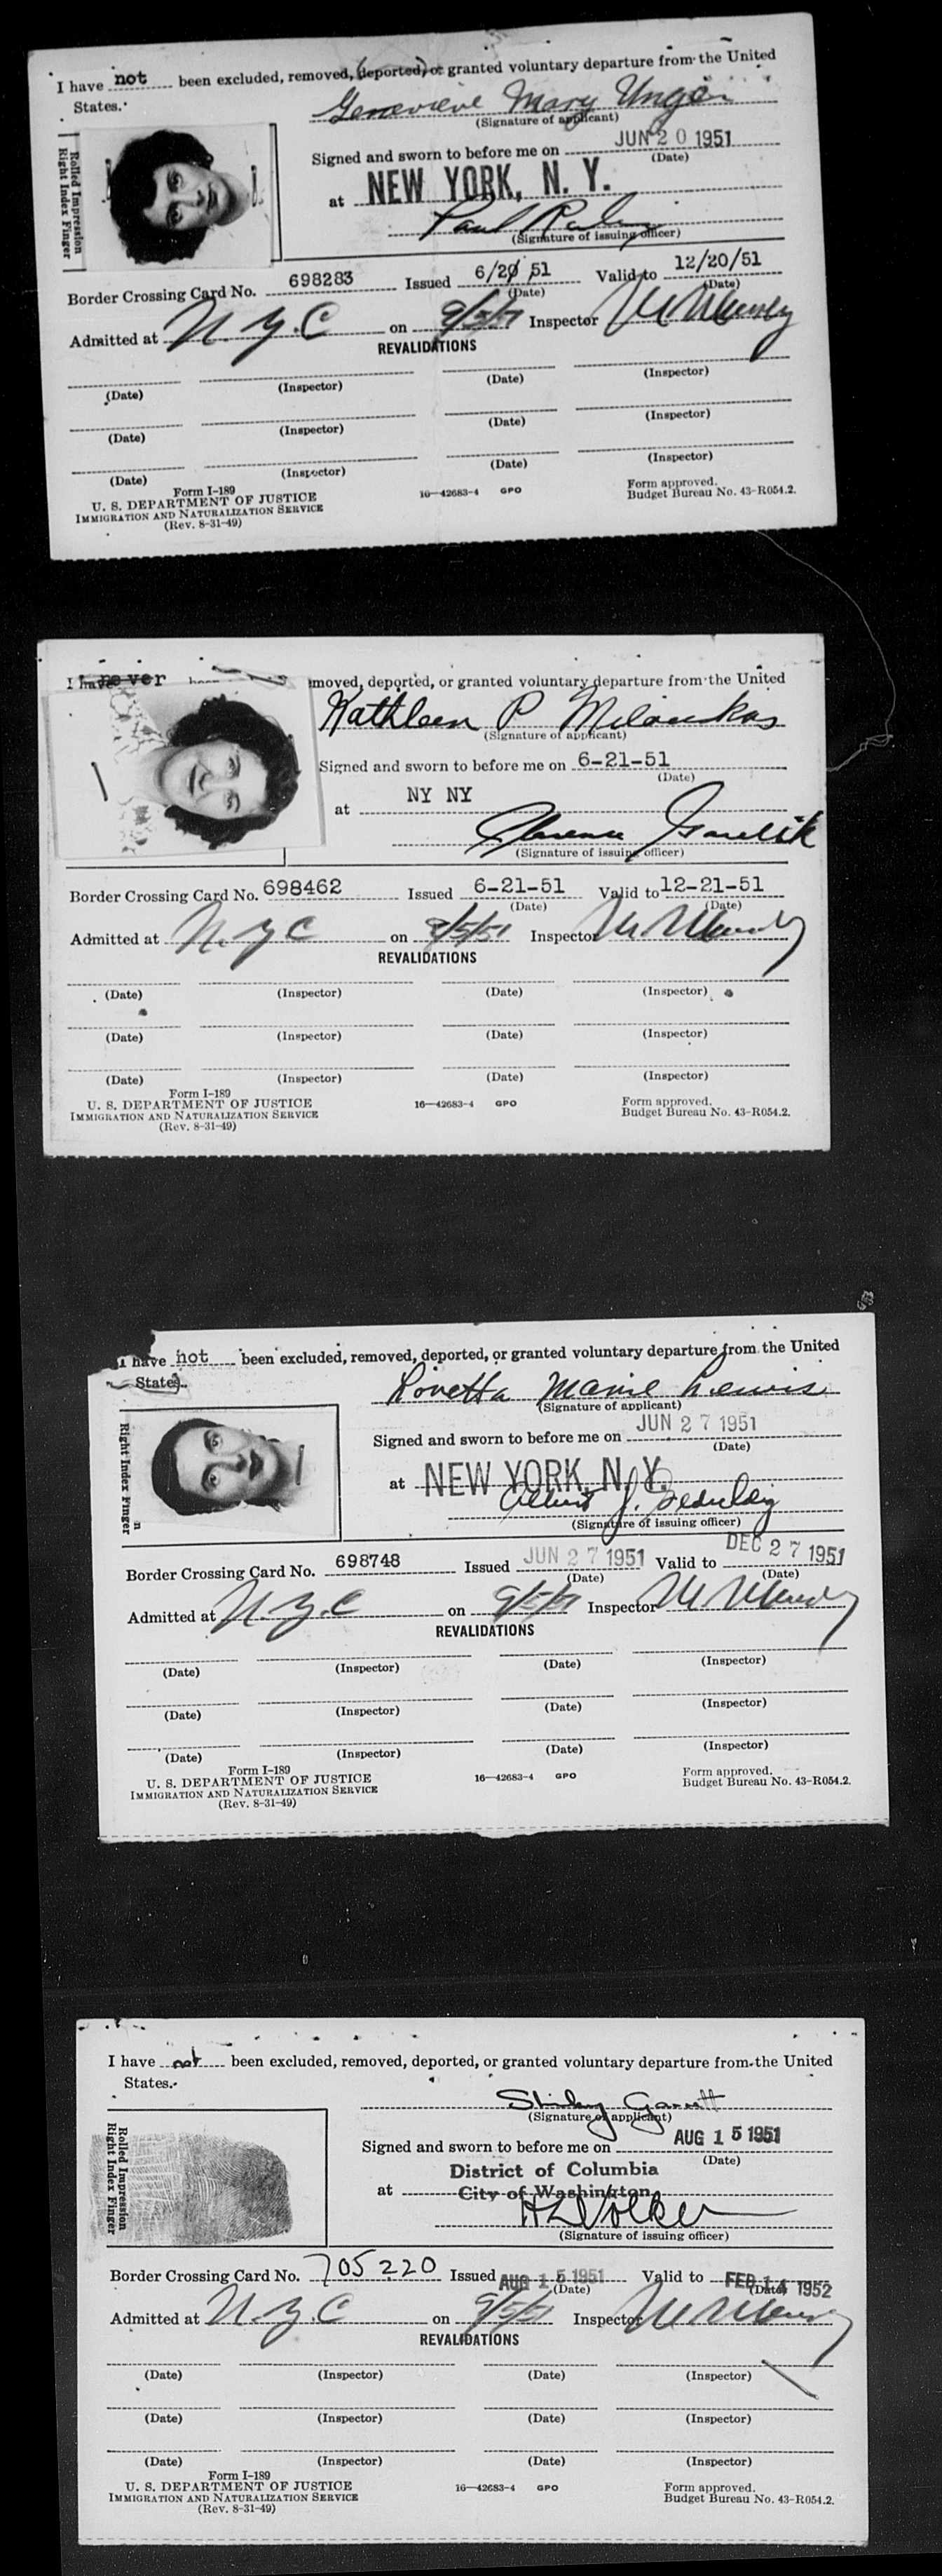 I have not been excluded, removed, deported, or granted voluntary departure from the United
States.
Genevieve Mary Unger
(Signature of applicant)
Rolled Impression
Right Index Finger
Signed and sworn to before me on JUN 20 1951
(Date)
at NEW YORK, N. Y.
Paul
(Signature of issuing officer)
Border Crossing Card No. 698283 Issued 6/20 51 Valid to 12/20/51
(Date) (Date)
Admitted at N.Y.C on 9/5/51 Inspector
REVALIDATIONS
(Date) (Inspector) (Date) (Inspector)
(Date) (Inspector) (Date) (Inspector)
(Date) (Inspector) (Date) (Inspector)
Form I-189
U. S. DEPARTMENT OF JUSTICE
IMMIGRATION AND NATURALIZATION SERVICE
(Rev. 8-31-49)
16—42683-4 GPO
Form approved.
Budget Bureau No. 43-R054.2.
I have never moved, deported, or granted voluntary departure from the United
Kathleen P
(Signature of applicant)
Signed and sworn to before me on 6-21-51
(Date)
at NY NY
(Signature of issuing officer)
Border Crossing Card No. 698462 Issued 6-21-51 Valid to 12-21-51
(Date) (Date)
Admitted at N.Y.C on 9/5/51 Inspector
REVALIDATIONS
(Date) (Inspector) (Date) (Inspector)
(Date) (Inspector) (Date) (Inspector)
(Date) (Inspector) (Date) (Inspector)
Form I-189
U. S. DEPARTMENT OF JUSTICE
IMMIGRATION AND NATURALIZATION SERVICE
(Rev. 8-31-49)
16—42683-4 GPO
Form approved.
Budget Bureau No. 43-R054.2.
I have not been excluded, removed, deported, or granted voluntary departure from the United
States.
Lovetta Marie Lewis
(Signature of applicant)
Right Index Finger
Signed and sworn to before me on JUN 27 1951
(Date)
at NEW YORK, N. Y.
Albert J.
(Signature of issuing officer)
Border Crossing Card No. 698748 Issued JUN 27 1951 Valid to DEC 27 1951
(Date) (Date)
Admitted at N.Y.C on 9/5/51 Inspector
REVALIDATIONS
(Date) (Inspector) (Date) (Inspector)
(Date) (Inspector) (Date) (Inspector)
(Date) (Inspector) (Date) (Inspector)
Form I-189
U. S. DEPARTMENT OF JUSTICE
IMMIGRATION AND NATURALIZATION SERVICE
(Rev. 8-31-49)
16—42683-4 GPO
Form approved.
Budget Bureau No. 43-R054.2.
I have not been excluded, removed, deported, or granted voluntary departure from the United
States.
Shirley Garrett
(Signature of applicant)
Rolled Impression
Right Index Finger
Signed and sworn to before me on AUG 15 1951
(Date)
District of Columbia
at City of Washington
(Signature of issuing officer)
Border Crossing Card No. 705220 Issued AUG 15 1951 Valid to FEB 14 1952
(Date) (Date)
Admitted at N.Y.C on 9/5/51 Inspector
REVALIDATIONS
(Date) (Inspector) (Date) (Inspector)
(Date) (Inspector) (Date) (Inspector)
(Date) (Inspector) (Date) (Inspector)
Form I-189
U. S. DEPARTMENT OF JUSTICE
IMMIGRATION AND NATURALIZATION SERVICE
(Rev. 8-31-49)
16—42683-4 GPO
Form approved.
Budget Bureau No. 43-R054.2.